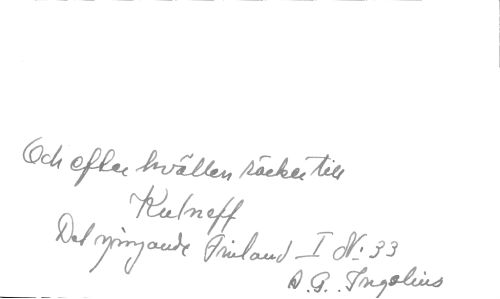 Och efter kvällen räcker till
Kulneff
Det sjungande Finland I Nr. 33
A. G. Ingelius